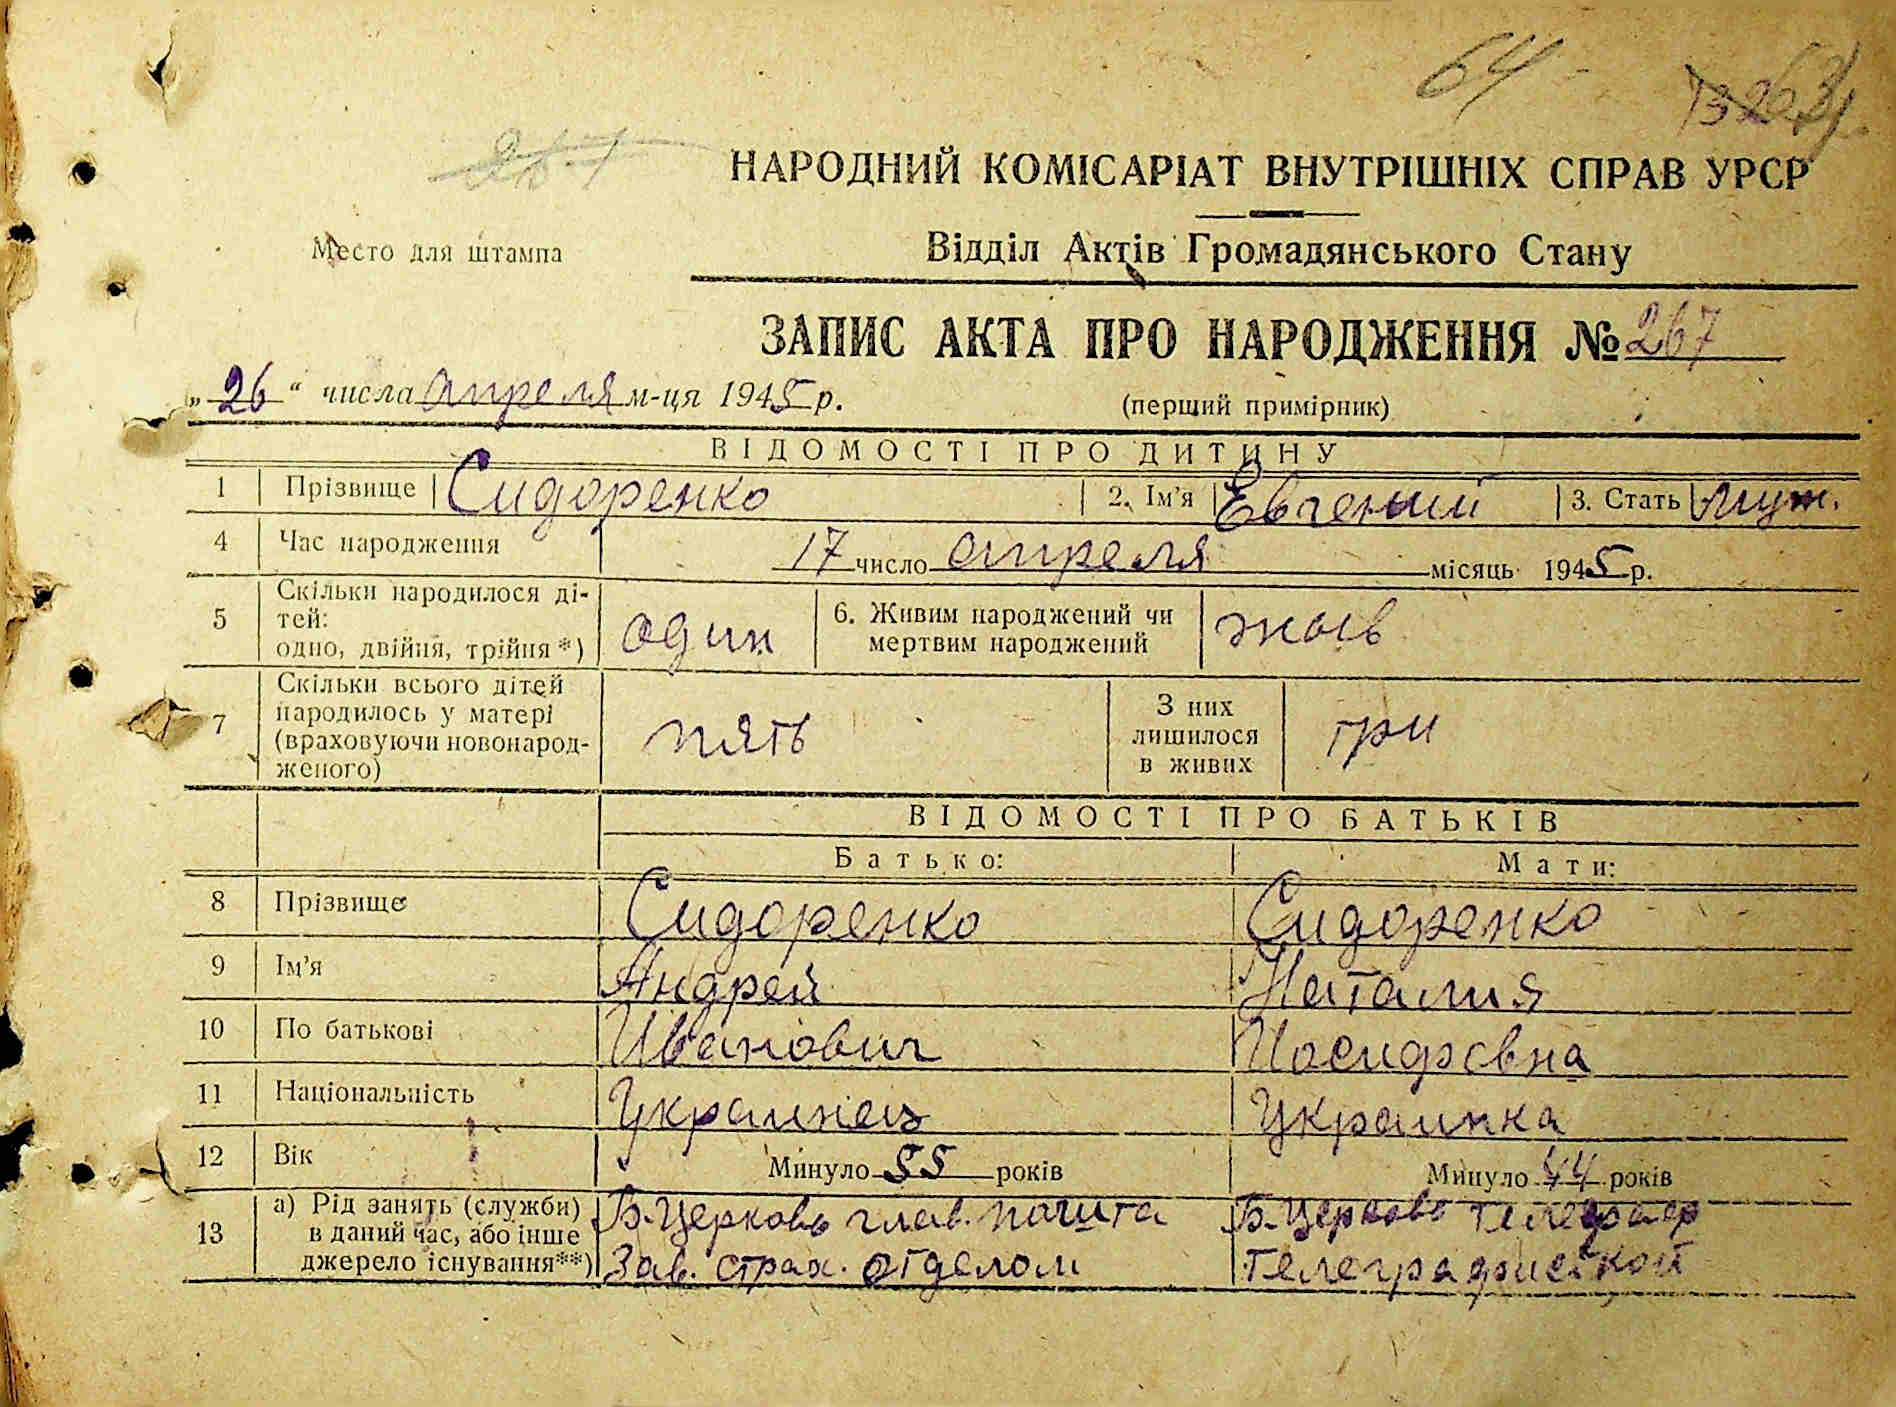 64
63
267
НАРОДНИЙ КОМІСАРІАТ ВНУТРІШНІХ СПРАВ УРСР
Место для штампа
Відділ Актів Громадянського Стану
ЗАПИС АКТА ПРО НАРОДЖЕННЯ № 267
„26“ числа апреля м-ця 1945 р.
(перший примірник)
ВІДОМОСТІ ПРО ДИТИНУ
1 Прізвище Сидоренко 2. Ім'я Евгений 3. Стать муж.
4 Час народження 17 число апреля місяць 1945 р.
5 Скільки народилося ді-
тей:
одно, двійня, трійня*) один
6. Живим народжений чи
мертвим народжений жыв
7 Скільки всього дітей
народилось у матері
(враховуючи новонарод-
женого) пять
З них
лишилося
в живих три
ВІДОМОСТІ ПРО БАТЬКІВ
Батько: Мати:
8 Прізвище Сидоренко Сидоренко
9 Ім'я Андрей Наталия
10 По батькові Иванович Иосифовна
11 Національність Украинец Украинка
12 Вік Минуло 55 років Минуло 44 років
13 а) Рід занять (служби)
в даний час, або інше
джерело існування**)
Б-Церковь глав. пошта
Зав. страх. отделом
Б-Церковь телеграф